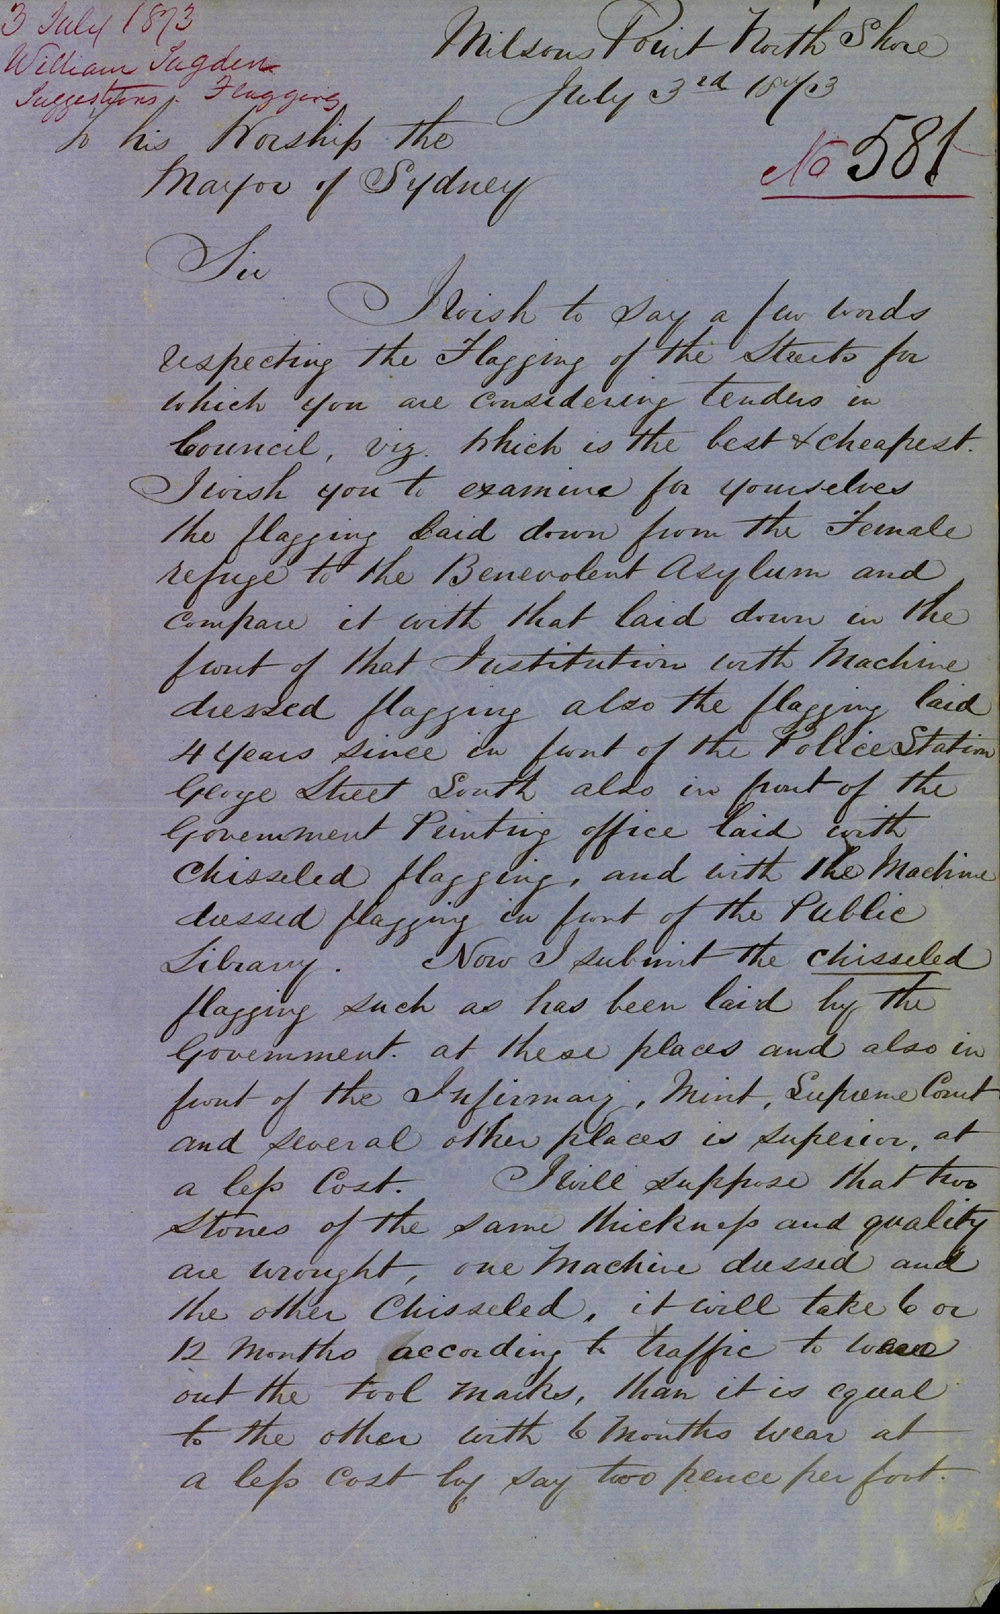 3 July 1873
William Sugden
Suggestions. Flagging
Milsons Point North Shore
July 3rd 1873
To his Worship the
Mayor of Sydney
No 581
Sir
I wish to say a few words
respecting the Flagging of the Streets for
which you are considering tenders in
Council, viz. which is the best & cheapest.
I wish you to examine for yourselves
the flagging laid down from the Female
refuge to the Benevolent Asylum and
compare it with that laid down in the
front of that Institution with Machine
dressed flagging also the flagging laid
4 years since in front of the Police Station
George Street South also in front of the
Government Printing office laid with
Chisseled flagging, and with the Machine
dressed flagging in front of the Public
Library. Now I submit the chisseled
flagging such as has been laid by the
Government. at these places and also in
front of the Infirmary, Mint, Supreme Court
and several other places is superior, at
a less Cost. I will suppose that two
stones of the same thickness and quality
are wrought, one Machine dressed and
the other Chisseled, it will take 6 or
12 Months according to traffic to wear
out the tool marks, than it is equal
to the other with 6 Months wear at
a less Cost by say two pence per foot.